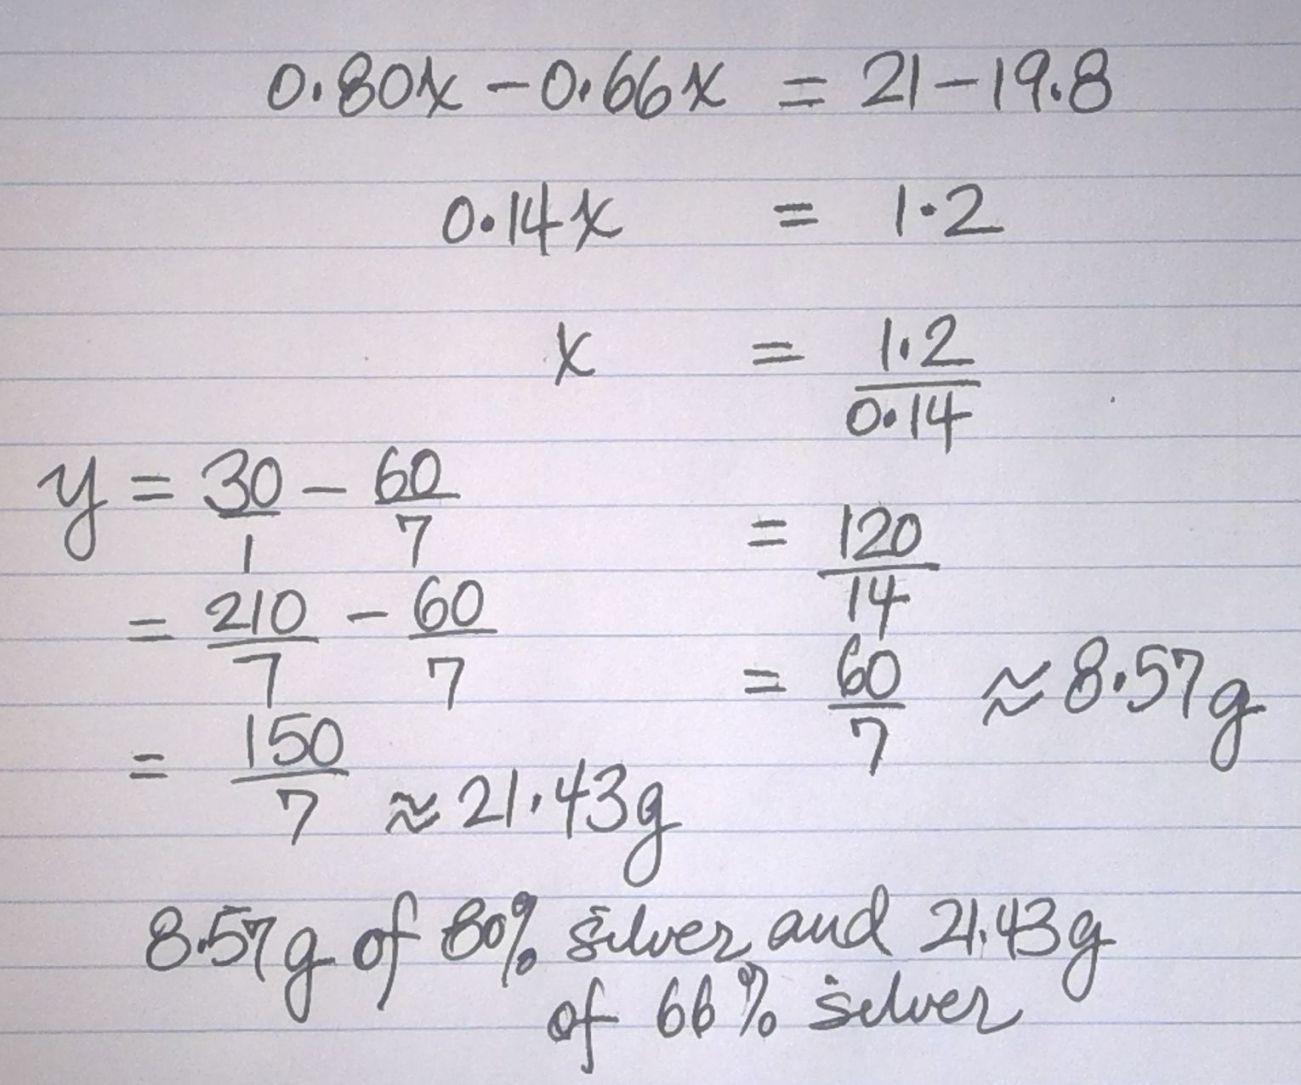 0.80x - 0.66x = 21 - 19.8
0.14x = 1.2
x = 1.2/0.14
= 120/14
= 60/7 ≈ 8.57g
y = 30/1 - 60/7
= 210/7 - 60/7
= 150/7 ≈ 21.43g
8.57g of 80% silver and 21.43g
of 66% silver